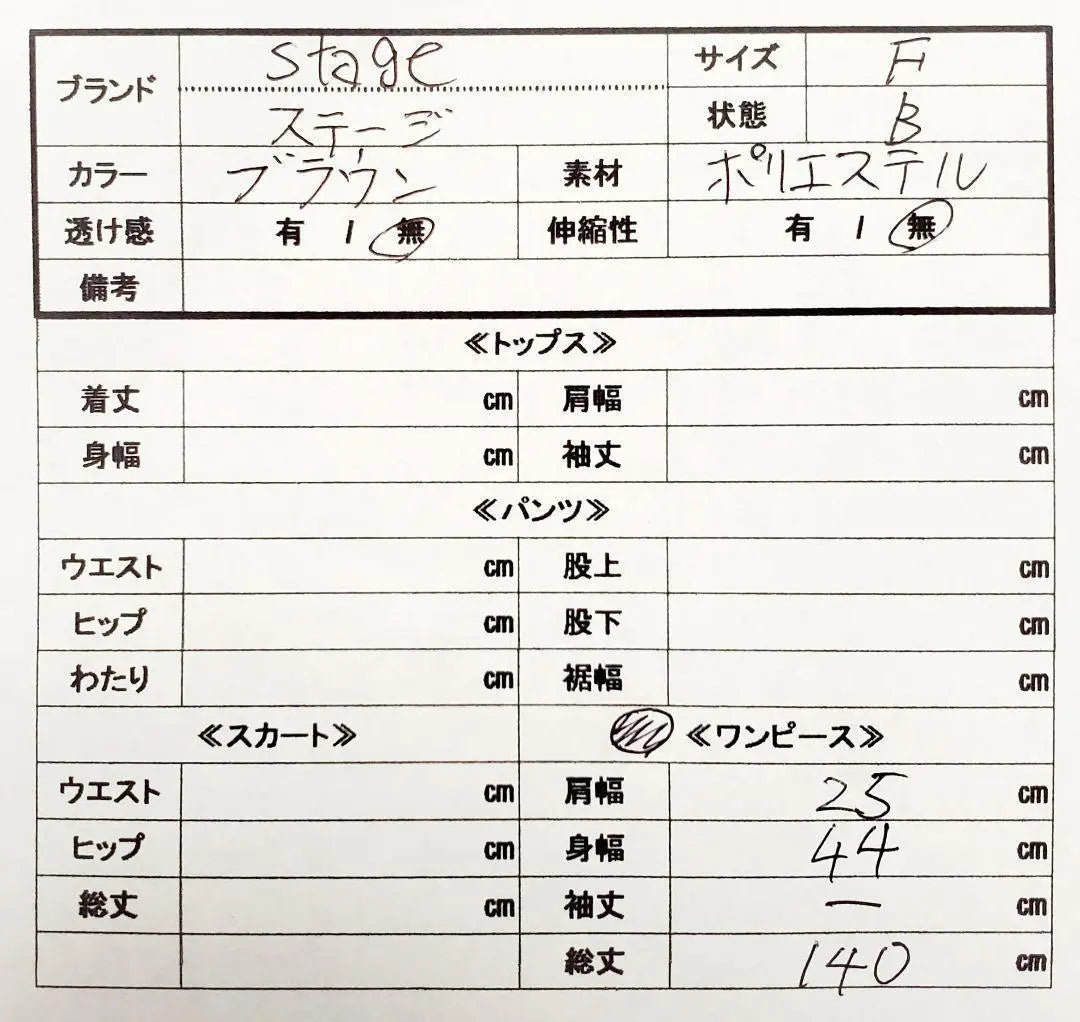 ブランド stage サイズ F
ステージ 状態 B
カラー ブラウン 素材 ポリエステル
透け感 有 / 無 伸縮性 有 / 無
備考
≪トップス≫
着丈 cm 肩幅 cm
身幅 cm 袖丈 cm
≪パンツ≫
ウエスト cm 股上 cm
ヒップ cm 股下 cm
わたり cm 裾幅 cm
≪スカート≫ ≪ワンピース≫
ウエスト cm 肩幅 25 cm
ヒップ cm 身幅 44 cm
総丈 cm 袖丈 ー cm
総丈 140 cm